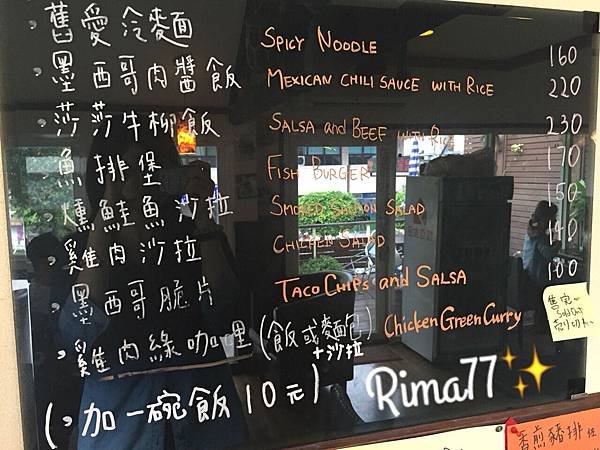 舊愛冷麵 SPICY NOODLE 160
墨西哥肉醬飯 MEXICAN CHILI SAUCE WITH RICE 220
莎莎牛柳飯 SALSA AND BEEF WITH RICE 230
魚排堡 FISH BURGER 170
燻鮭魚沙拉 SMOKED SALMON SALAD 150
雞肉沙拉 CHICKEN SALAD 140
墨西哥脆片 TACO CHIPS AND SALSA 100
雞肉綠咖哩(飯或麵包) Chicken Green Curry
+沙拉
(加一碗飯10元)
售完~
Sold Out
売り切れ
Rima77
香煎豬排